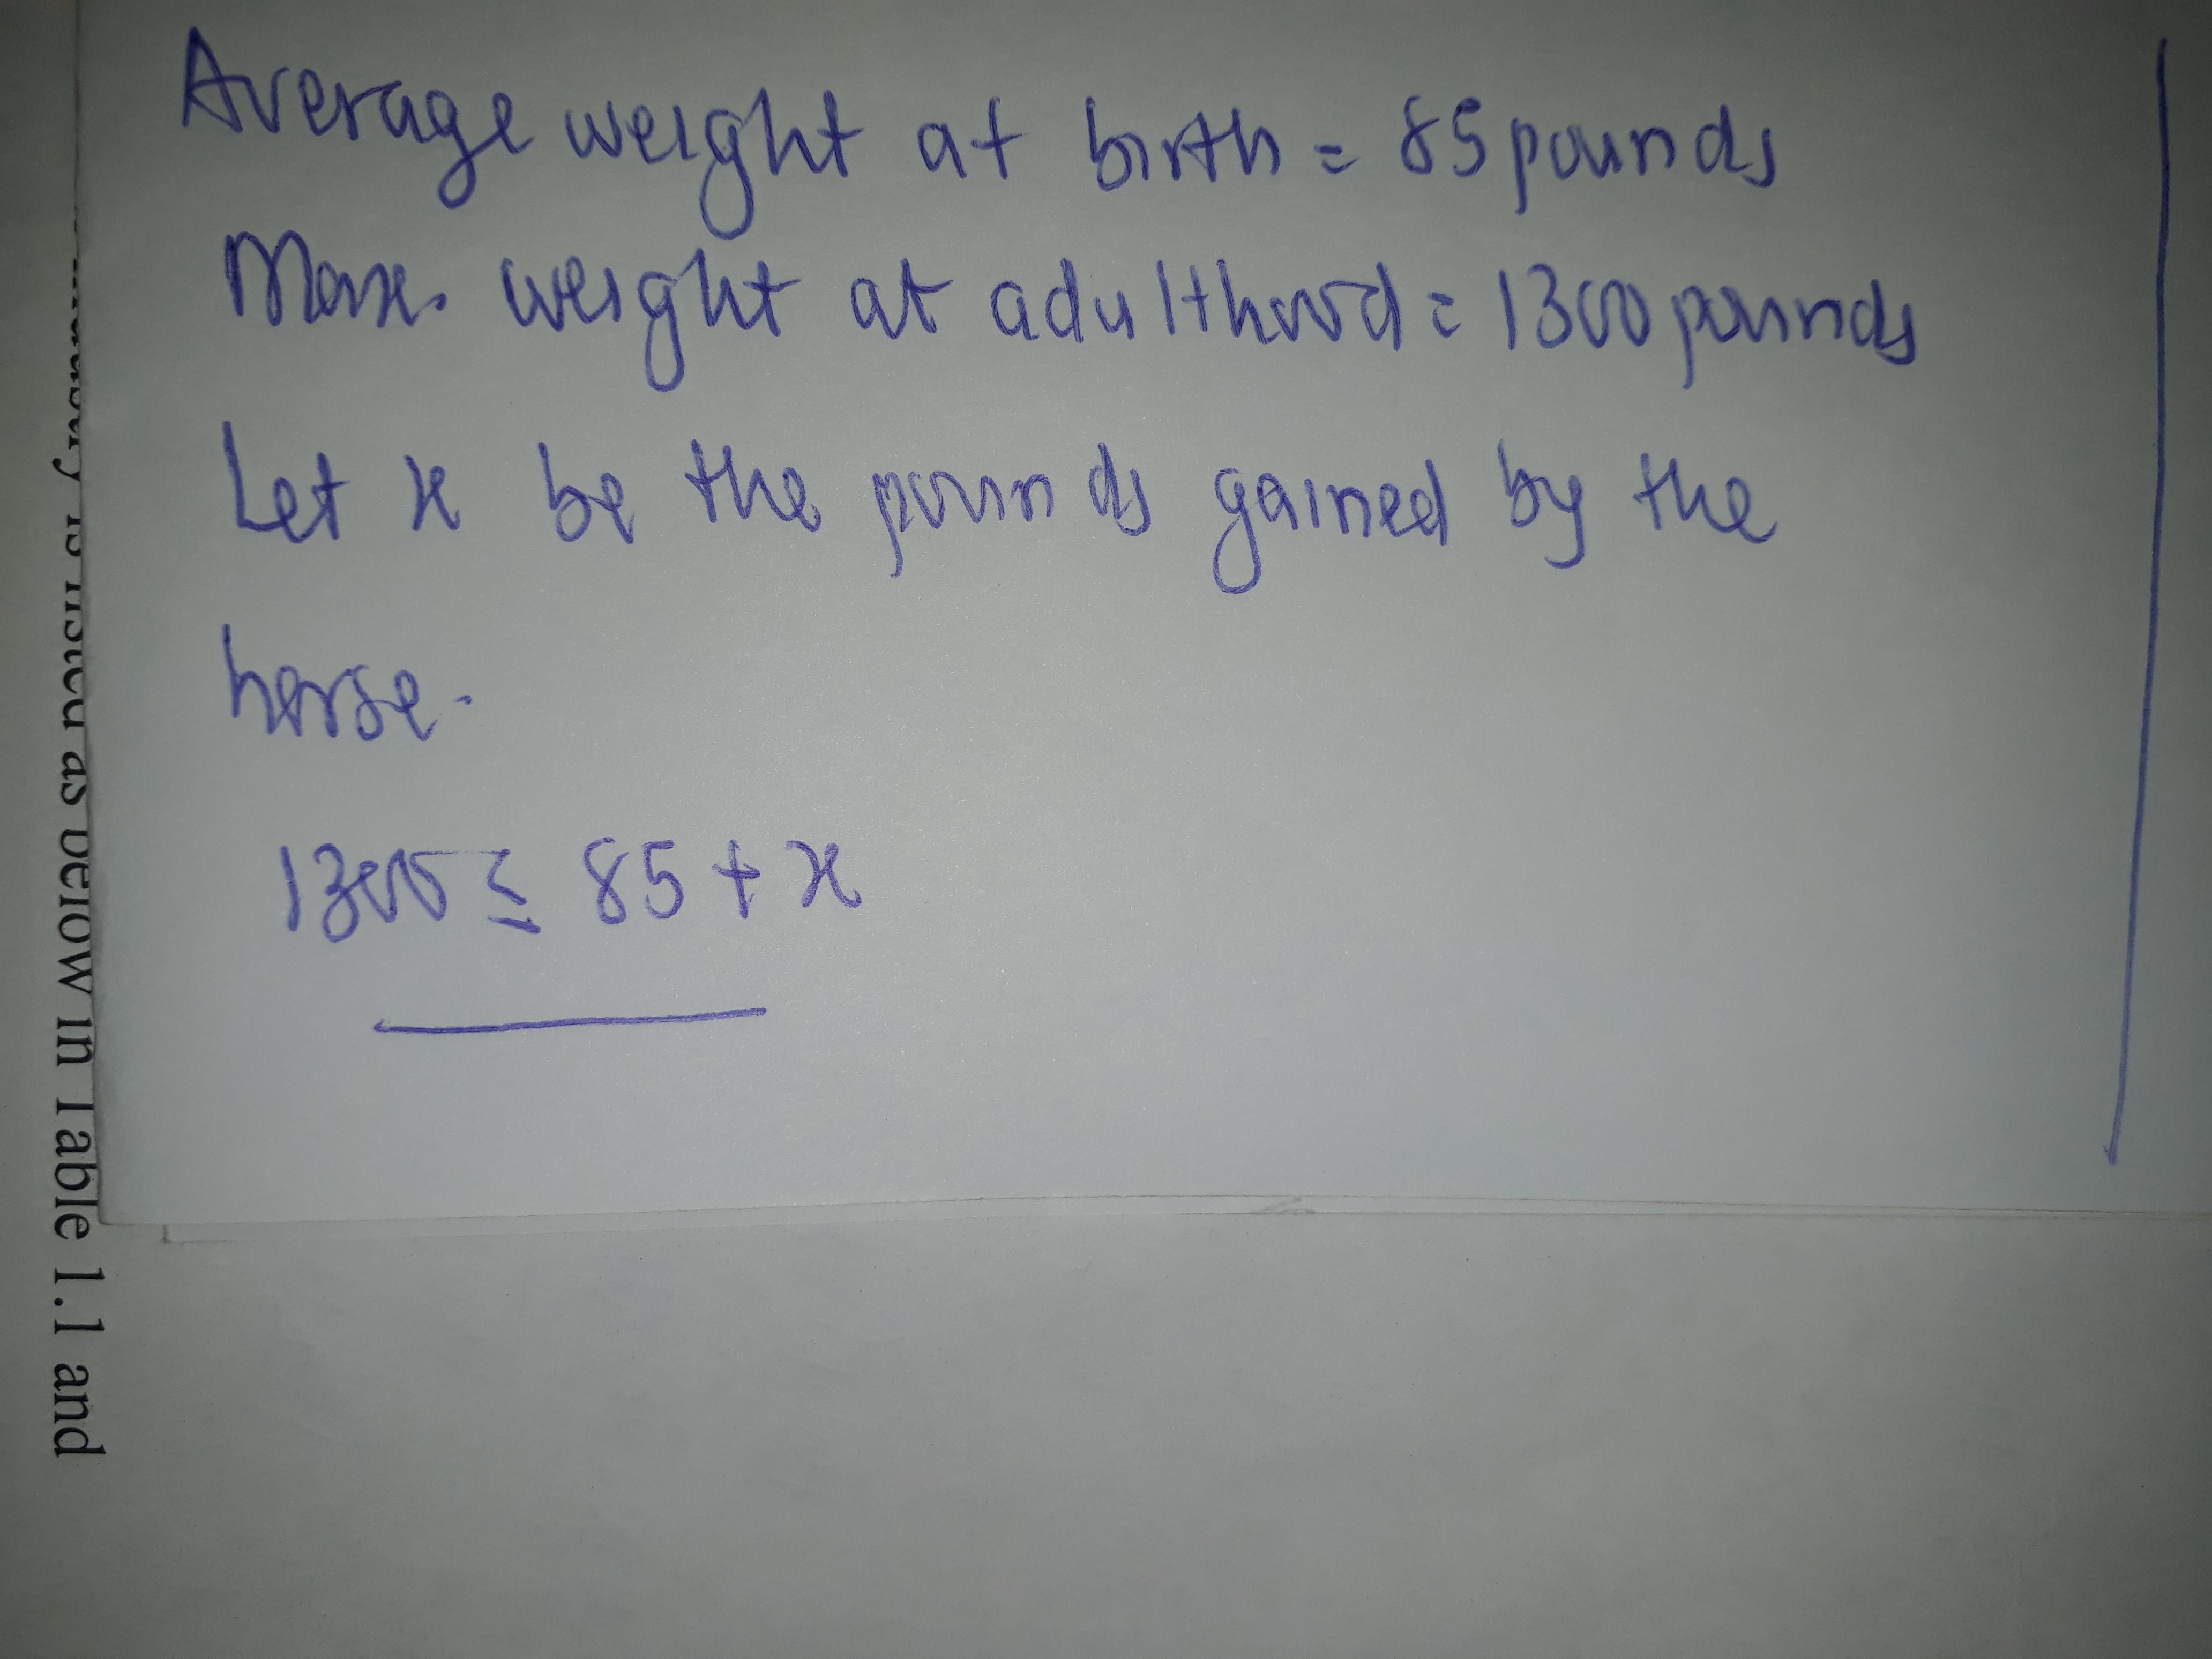 Average weight at birth = 85 pounds
Max. weight at adulthood = 1300 pounds
Let x be the pounds gained by the
horse.
1300 ≤ 85 + x
is listed as below in Table 1.1 and